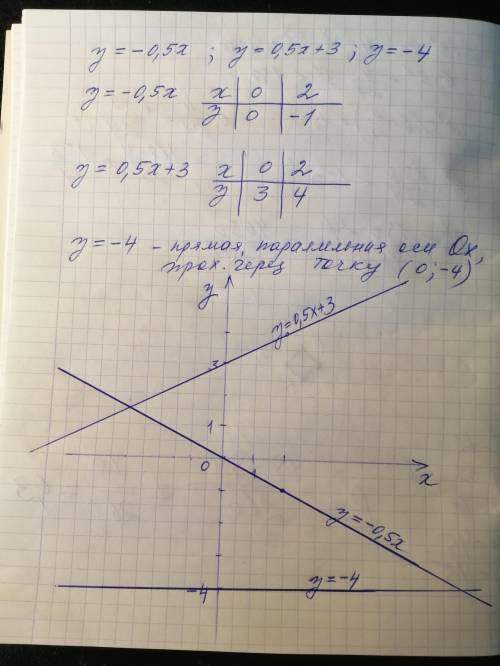 y = -0,5x ; y = 0,5x+3 ; y = -4
y = -0,5x x 0 2
y 0 -1
y = 0,5x+3 x 0 2
y 3 4
y = -4 - прямая, параллельная оси Ox,
прох. через точку (0; -4)
y
y=0,5x+3
3
1
0
1
x
y=-0,5x
y=-4
-4